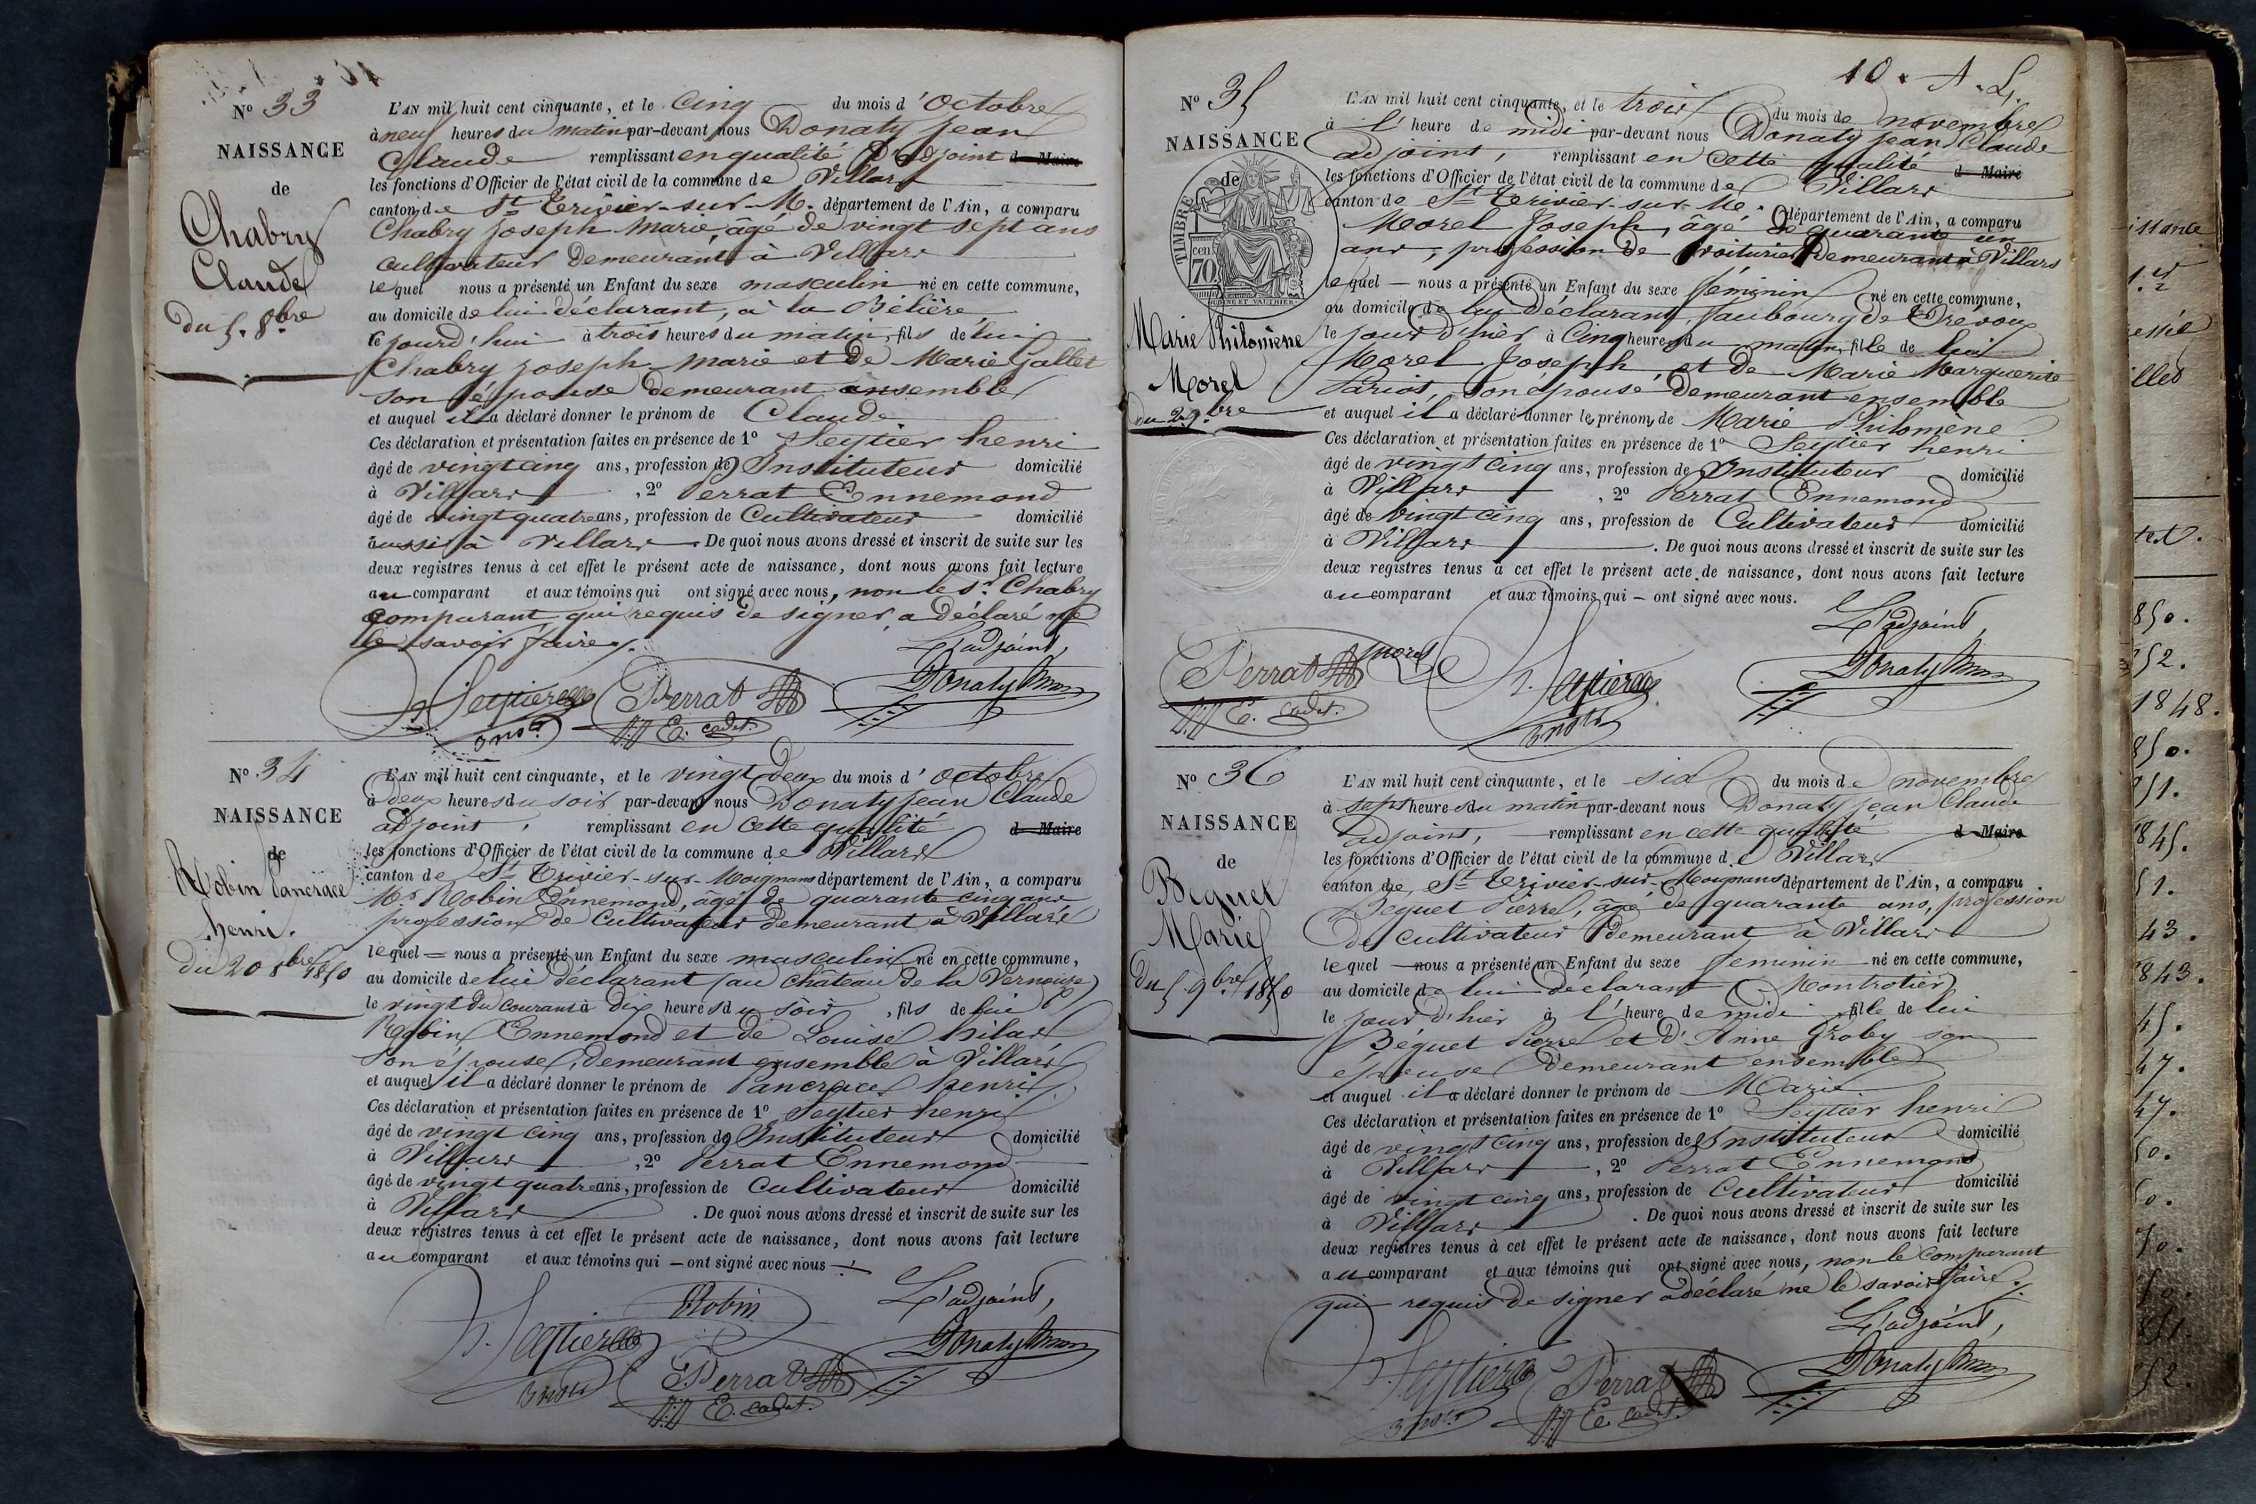 Nº 33
NAISSANCE
de
Chabry
Claude
du 5. 8bre
L'AN mil huit cent cinquante, et le cinq du mois d'Octobre
à neuf heures du matin par-devant nous Donaty jean
Claude remplissant en qualité d'adjoint d Maire
les fonctions d'Officier de l'état civil de la commune de Villars
canton de St Trivier-sur-M. département de l'Ain, a comparu
Chabry joseph marie, âgé de vingt sept ans
cultivateur demeurant à Villars
lequel nous a présenté un Enfant du sexe masculin né en cette commune,
au domicile de lui déclarant, à la Bélière,
ce jourd'hui à trois heures du matin, fils de lui
Chabry joseph marie et de Marie Gallet
son épouse demeurant ensemble
et auquel il a déclaré donner le prénom de Claude
Ces déclaration et présentation faites en présence de 1º Seytier henri
âgé de vingt cinq ans, profession de Instituteur domicilié
à Villars, 2º Perrat Ennemond
âgé de vingt quatre ans, profession de Cultivateur domicilié
aussi à Villars. De quoi nous avons dressé et inscrit de suite sur les
deux registres tenus à cet effet le présent acte de naissance, dont nous avons fait lecture
au comparant et aux témoins qui ont signé avec nous, non le sr. Chabry
comparant qui requis de signer a déclaré ne
le savoir faire.
L'adjoint,
h. Seytier Perrat Donaty
E. cadet.
Nº 34
NAISSANCE
de
Robin Pancrace
henri.
du 20 8bre 1850
L'AN mil huit cent cinquante, et le vingt deux du mois d'octobre
à deux heures du soir par-devant nous Donaty jean Claude
adjoint, remplissant en cette qualité d Maire
les fonctions d'Officier de l'état civil de la commune de Villars
canton de St Trivier-sur-Moignans département de l'Ain, a comparu
Mr Robin Ennemond, âgé de quarante cinq ans
profession de Cultivateur demeurant à Villars
lequel = nous a présenté un Enfant du sexe masculin né en cette commune,
au domicile de lui déclarant (au château de la Vernouze)
le vingt du courant à dix heures du soir, fils de lui
Robin Ennemond et de Louise hilar
son épouse, demeurant ensemble à Villars
et auquel il a déclaré donner le prénom de Pancrace henri.
Ces déclaration et présentation faites en présence de 1º Seytier henri
âgé de vingt cinq ans, profession de Instituteur domicilié
à Villars, 2º Perrat Ennemond
âgé de vingt quatre ans, profession de Cultivateur domicilié
à Villars. De quoi nous avons dressé et inscrit de suite sur les
deux registres tenus à cet effet le présent acte de naissance, dont nous avons fait lecture
au comparant et aux témoins qui — ont signé avec nous.
Robin L'adjoint,
h. Seytier Donaty
Perrat
E. cadet.
10. A. L.
Nº 35
NAISSANCE
de
TIMBRE
70 cen
Marie Philomène
Morel
du 2 9.bre
L'AN mil huit cent cinquante, et le trois du mois de novembre
à l'heure de midi par-devant nous Donaty jean Claude
adjoint, remplissant en cette qualité d Maire
les fonctions d'Officier de l'état civil de la commune de Villars
canton de St Trivier-sur-Mo. département de l'Ain, a comparu
Morel Joseph, âgé de quarante un
ans, profession de voiturier demeurant à Villars
lequel — nous a présenté un Enfant du sexe féminin né en cette commune,
au domicile de lui déclarant, faubourg de Trévoux
le jour d'hier à Cinq heures du matin, fille de lui
Morel Joseph, et de Marie Marguerite
Pariot, son épouse demeurant ensemble
et auquel il a déclaré donner le prénom de Marie Philomène
Ces déclaration et présentation faites en présence de 1º Seytier henri
âgé de vingt cinq ans, profession de Instituteur domicilié
à Villars, 2º Perrat Ennemond
âgé de vingt cinq ans, profession de Cultivateur domicilié
à Villars. De quoi nous avons dressé et inscrit de suite sur les
deux registres tenus à cet effet le présent acte de naissance, dont nous avons fait lecture
au comparant et aux témoins qui — ont signé avec nous.
L'adjoint,
Perrat morel h. Seytier Donaty
E. cadet.
Nº 36
NAISSANCE
de
Béguet
Marie
du 5 9bre 1850
L'AN mil huit cent cinquante, et le six du mois de novembre
à sept heures du matin par-devant nous Donaty jean Claude
adjoint, remplissant en cette qualité d Maire
les fonctions d'Officier de l'état civil de la commune de Villars
canton de St Trivier-sur-Moignans département de l'Ain, a comparu
Béguet Pierre, âgé de quarante ans, profession
de cultivateur demeurant à Villars
lequel — nous a présenté un Enfant du sexe féminin né en cette commune,
au domicile de lui déclarant (Montrotier)
le jour d'hier à l'heure de midi fille de lui
Béguet Pierre et d'Anne Groby son
épouse demeurant ensemble
et auquel il a déclaré donner le prénom de Marie
Ces déclaration et présentation faites en présence de 1º Seytier henri
âgé de vingt cinq ans, profession de Instituteur domicilié
à Villars, 2º Perrat Ennemond
âgé de vingt cinq ans, profession de Cultivateur domicilié
à Villars. De quoi nous avons dressé et inscrit de suite sur les
deux registres tenus à cet effet le présent acte de naissance, dont nous avons fait lecture
au comparant et aux témoins qui ont signé avec nous, non le comparant
qui requis de signer a déclaré ne le savoir faire.
L'adjoint,
h. Seytier Perrat Donaty
E. cadet.
850.
52.
1848.
850.
51.
845.
51.
43.
843.
45.
47.
47.
50.
50.
50.
50.
851.
52.